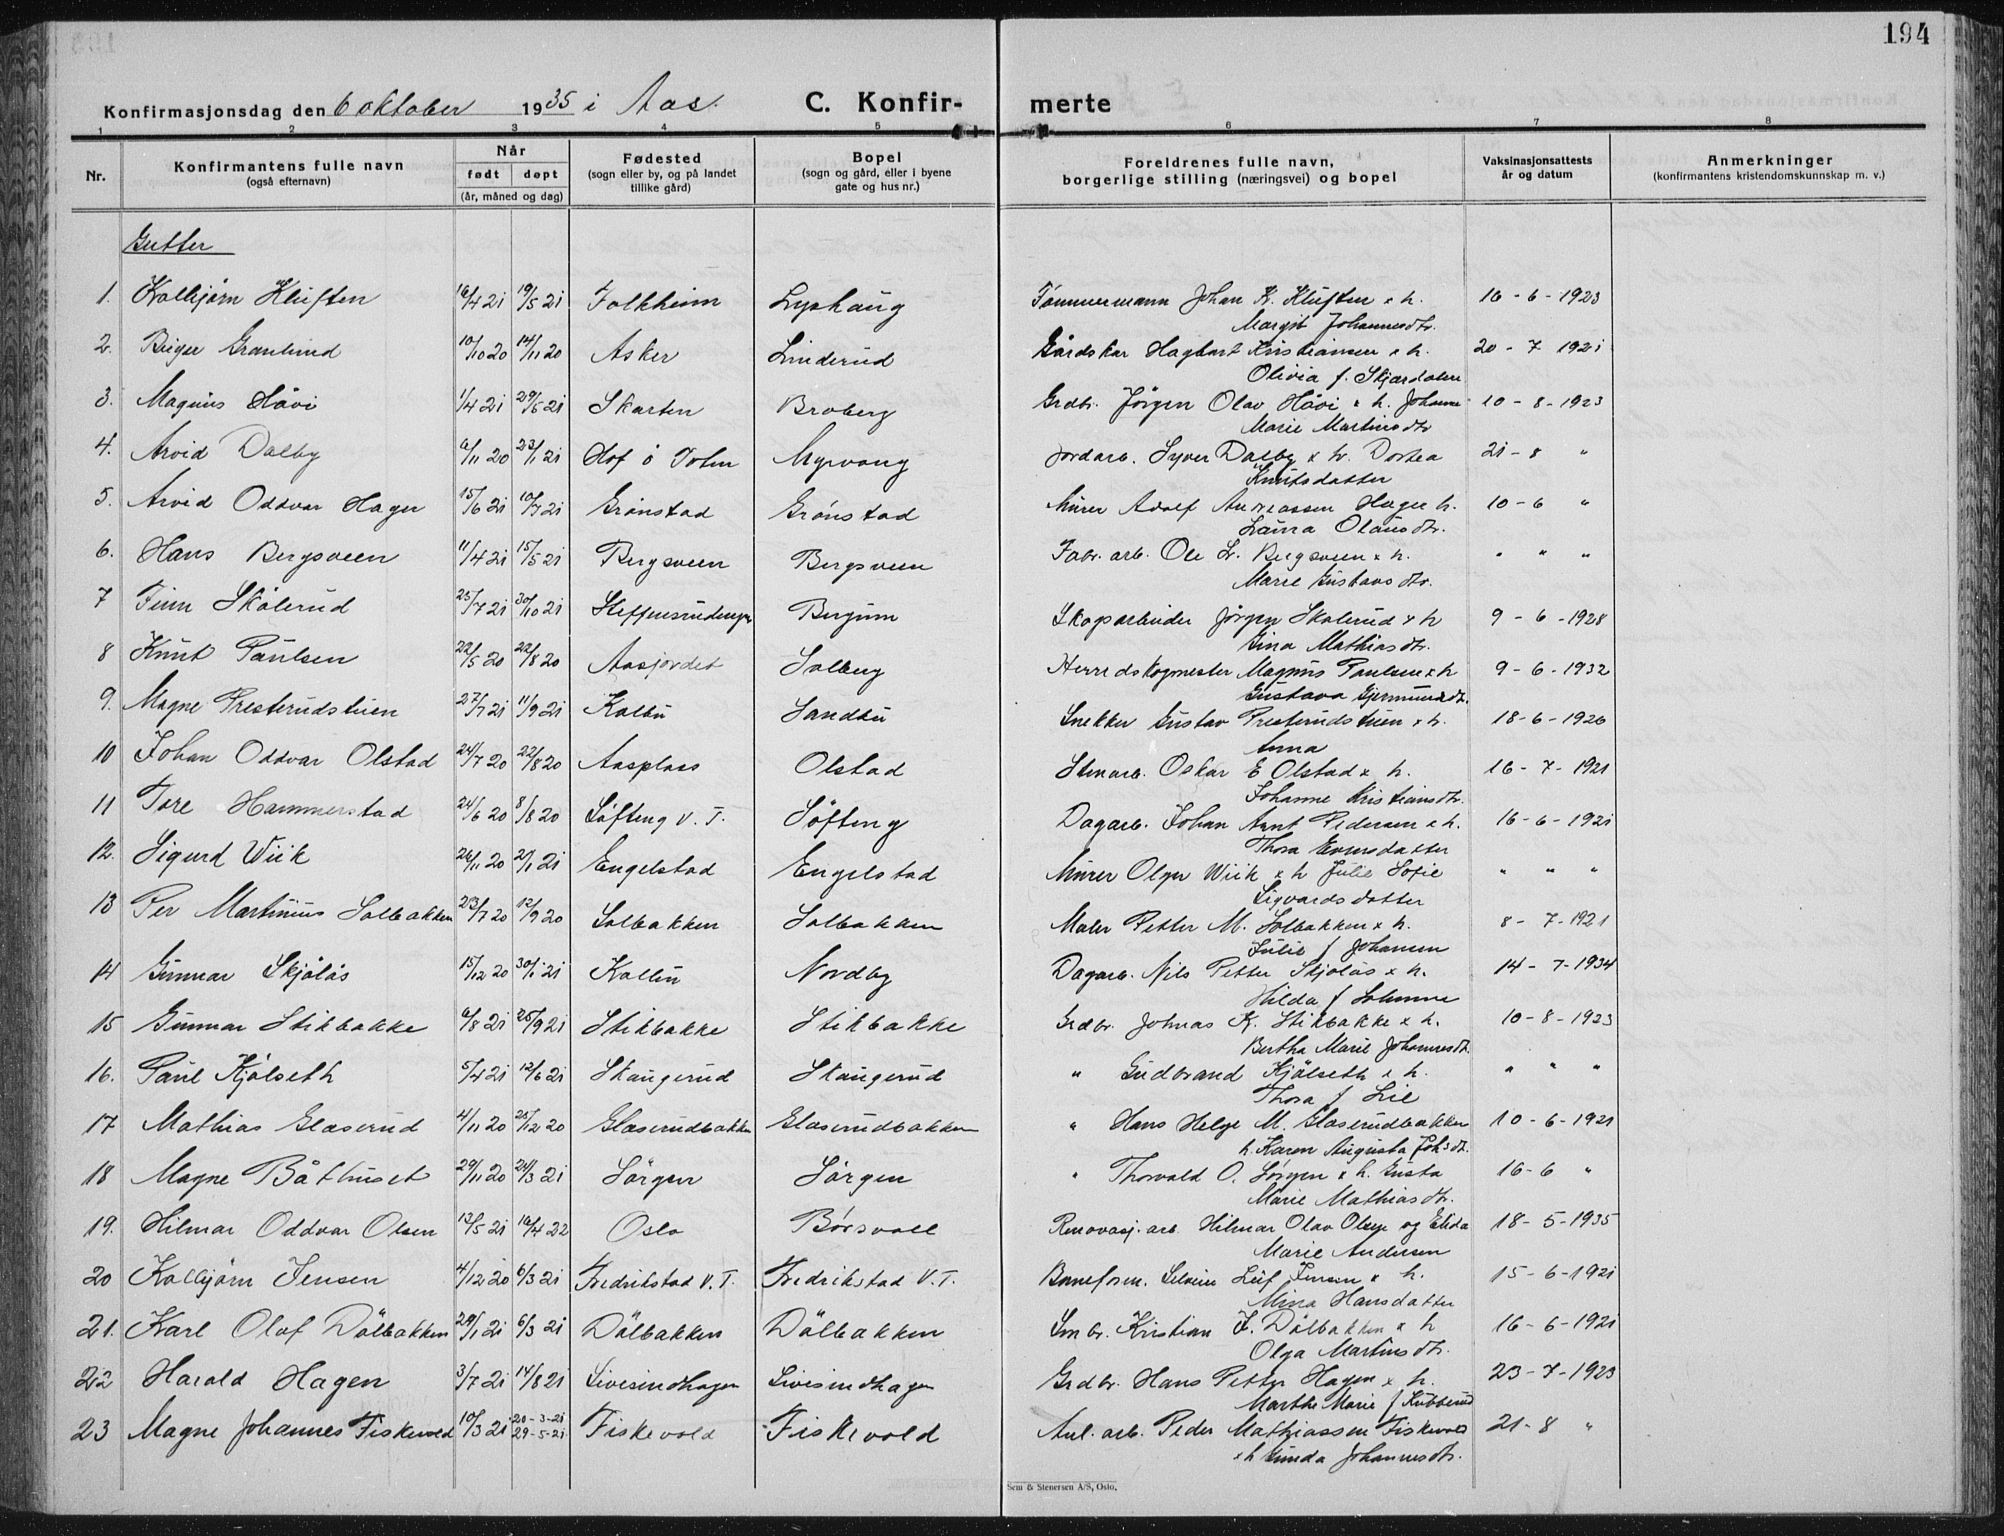 194
Konfirmasjonsdag den 6 oktober 1935 i Aas.
C. Konfir-
merte
1 2 3 4 5 6 7 8
Nr.
Konfirmantens fulle navn
(også efternavn)
Når
født døpt
(år, måned og dag)
Fødested
(sogn eller by, og på landet
tillike gård)
Bopel
(sogn og gård, eller i byene
gate og hus nr.)
Foreldrenes fulle navn,
borgerlige stilling (næringsvei) og bopel
Vaksinasjonsattests
år og datum
Anmerkninger
(konfirmantens kristendomskunnskap m. v.)
Gutter
1. Kolbjørn Kluften 16/4 21 19/5 21 Folkheim Lyshaug Tømmermann Johan K. Kluften x h. 16 - 6 - 1923
Margit Johannesdtr.
2. Birger Granlund 10/10 20 14/11 20 Asker Linderud Gårdskar Hagbart Kristiansen x h. 20 - 7 1921
Olivia f. Skjærdalen
3. Magnus Håvi 1/4 21 29/5 21 Skarten Broberg Grdbr. Jörgen Olav Håvi x h. Johanne 10 - 8 - 1923
Marie Martinsdtr
4. Arvid Dalby 6/11 20 23/1 21 Hof ö Toten Myrvang Jordarb. Syver Dalby x h. Dortea 21 - 8 "
Knutsdatter
5. Arvid Oddvar Hager 15/6 21 10/7 21 Grönstad Grönstad Murer Adolf Andreassen Hager h. 10 - 6 "
Laura Olausdtr.
6. Hans Bergsveen 11/4 21 15/5 21 Bergsveen Bergsveen Fabr. arb. Ole L. Bergsveen x h. " " "
Marie Gustavsdtr.
7 Finn Skölerud 25/7 21 30/10 21 Steffensrudengen Bergum Skogsarbeider Jörgen Skolerud x h 9 - 6 - 1928
Gina Mathiasdtr.
8 Knut Paulsen 22/5 20 22/8 20 Aasjordet Solberg Herredskogmester Magnus Paulsen x h 9 - 6 - 1932
Gustava Gjermundsdtr.
9. Magne Presterudstuen 27/7 21 11/9 21 Kolbu Sandbu Snekker Gustav Presterudstuen x h. 18 - 6 - 1926
Anna
10 Johan Oddvar Olstad 24/7 20 22/8 20 Aasplass Olstad Stenarb. Oskar E Olstad x h. 16 - 7 - 1921
Johanne Kristiansdtr.
11 Tore Hammerstad 24/6 20 8/8 20 Söfteng V. T. Söfteng Dagarb. Johan Arnt Pedersen x h. 16 - 6 - 1921
Thora Evensdatter
12. Sigurd Wiik 26/11 20 2/1 21 Engelstad Engelstad Murer Olger Wiik x h Julie Sofie " " "
Sigvardsdatter
13 Per Martinius Solbakken 23/7 20 12/9 20 Solbakken Solbakken Maler Petter M. Solbakken x h. 8 - 7 - 1921
Julie f Johansen
14 Gunnar Skjölås 15/12 20 30/1 21 Kolbu Nordby Dagarb. Nils Petter Skjolås x h. 14 - 7 - 1934
Hilda f
15 Gunnar Stikbakke 6/8 21 25/9 21 Stikbakke Stikbakke Grdbr. Johnas K. Stikbakke x h. 10 - 8 - 1923
Bertha Marie Johannesdtr.
16. Paul Kjölseth 5/4 21 12/6 21 Skaugerud Skaugerud " Gudbrand Kjölseth x h. " " "
Thora f Lie
17 Mathias Glæserud 4/11 20 25/12 20 Glæserudbakken Glæserudbakken " Hans Helge M. Glæserudbakken 10 - 6 - 1921
h. Karen Augusta Johsdtr.
18 Magne Båthuset 29/11 20 24/3 21 Sörgen Sörgen " Thorvald O. Sörgen x h. Gusta 16 - 6 "
Marie Mathiasdtr.
19. Hilmar Oddvar Olsen 13/5 21 16/4 22 Oslo Börsvoll Renovasj. arb. Hilmar Olav Olsen og Elida 18 - 5 - 1935
Marie Andersen
20 Kolbjørn Jensen 4/12 20 6/3 21 Fredrikstad V. T. Fredrikstad V. T. Baneform. Leif Jensen x h. 15 - 6 - 1921
Mina Hansdatter
21. Karl Olaf Dölbakken 29/1 21 6/3 21 Dölbakken Dölbakken Smbr. Kristian J. Dölbakken x h 16 - 6 - 1921
Olga Martinsdtr.
22 Harald Hagen 3/7 21 14/8 21 Sivesindhagen Sivesindhagen Grdbr. Hans Petter Hagen x h. 23 - 7 - 1923
Marthe Marie f Kubberud
23 Magne Johannes Fiskevold 10/3 21 20 - 3 - 21 Fiskevold Fiskevold Anl. arb. Peder Mathiassen Fiskevold 21 - 8 "
29 - 5 - 21
x h Gunda Johannesdtr.
Sem & Stenersen A/S, Oslo.